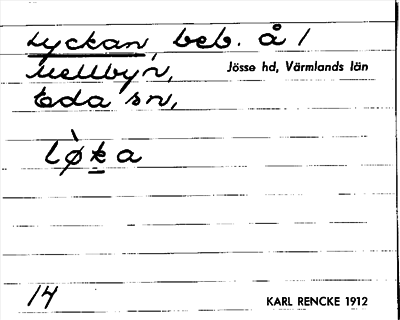 Lyckan, beb. å /
Mellbyn, Jösse hd, Värmlands län
Eda sn,
lø̀k̠a
14 KARL RENCKE 1912